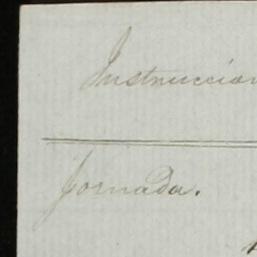 Instruccion
Jornada.